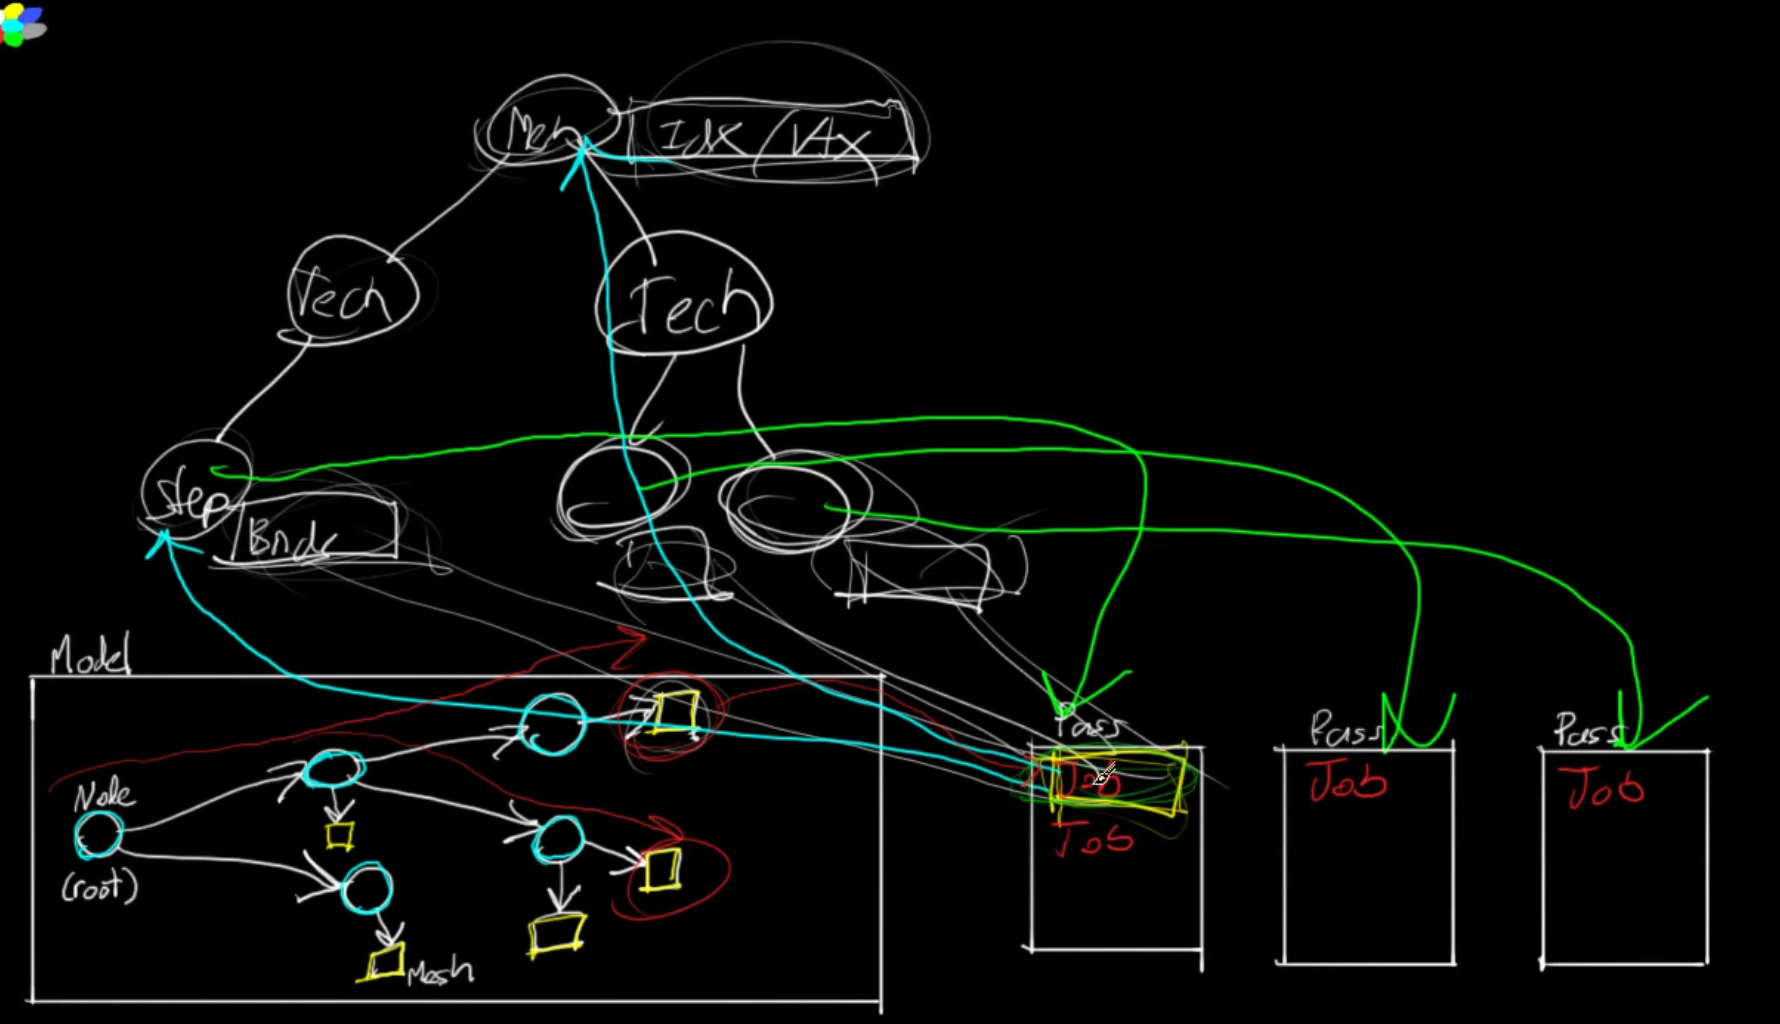 Mesh
Idx / Vtx
Tech
Tech
Step
Bnds
Model
Node
(root)
Mesh
Pass
Job
Job
Pass
Job
Pass
Job